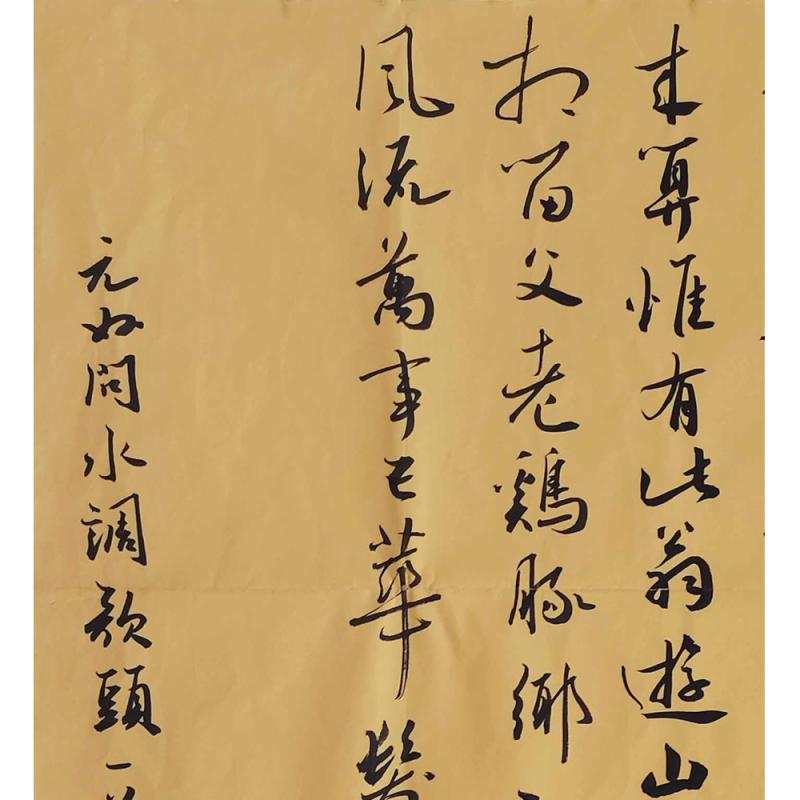 来算惟有此翁遊山
相留父老鷄豚鄉
風流萬事已華
元好問水調歌頭一